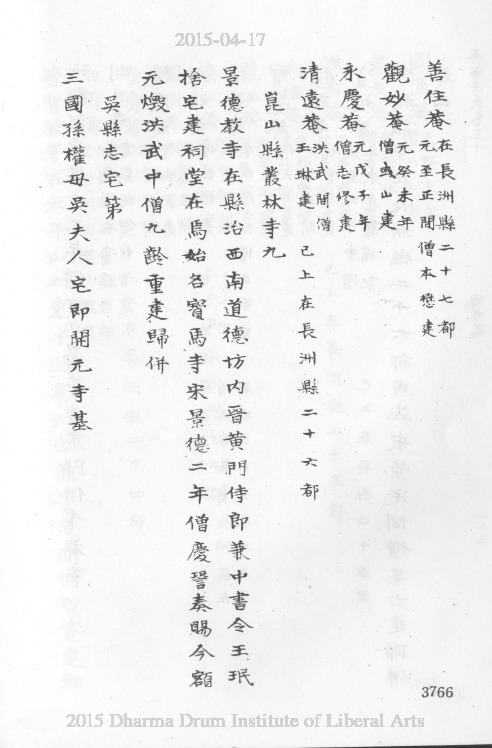 2015-04-17
善住菴在長洲縣二十七都
元至正間僧本懋建
觀妙菴元癸未年
僧
山建
永慶菴元戊午年
僧志修建
清遠菴洪武間僧
玉琳建 已上在長洲縣二十六都
崑山縣叢林寺九
景德教寺在縣治西南道德坊內晉黃門侍郎兼中書令王珉
捨宅建祠堂在焉始名寶馬寺宋景德二年僧慶詧奏賜今額
元燬洪武中僧九齡重建歸併
吳縣志宅第
三國孫權母吳夫人宅即開元寺基
3766
2015 Dharma Drum Institute of Liberal Arts